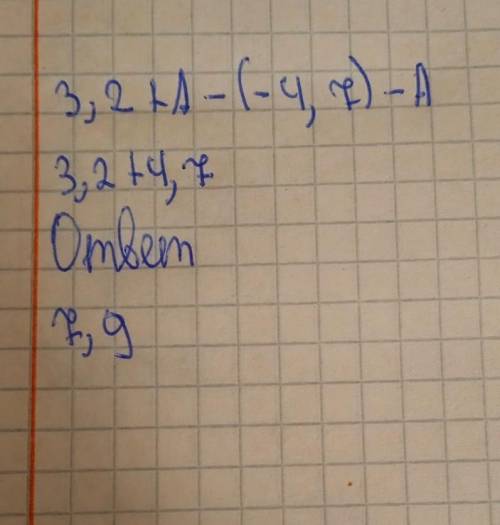 3,2+A-(-4,7)-A
3,2+4,7
Ответ
7,9